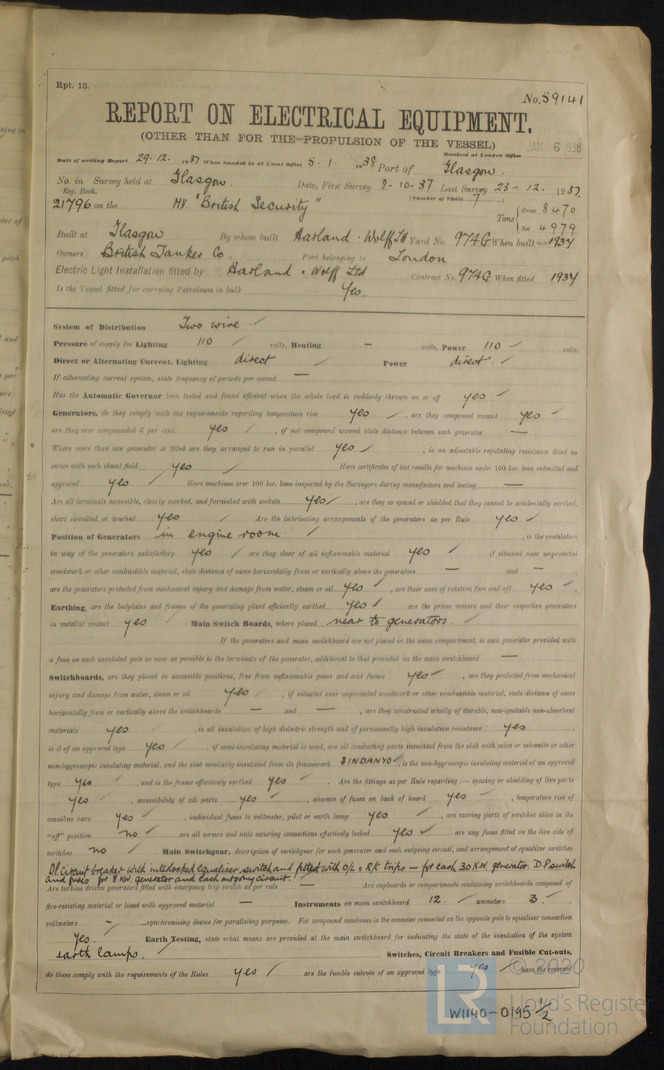 Rpt. 13.
No. 59141
REPORT ON ELECTRICAL EQUIPMENT.
(OTHER THAN FOR THE PROPULSION OF THE VESSEL)
JAN 6 1938
Date of writing Report 29-12- 1937 When handed in at Local Office 5-1 1938 Port of Glasgow. Received at London Office
No. in Survey held at Glasgow. Date, First Survey 8-10-37 Last Survey 23-12-1937
Reg. Book. (Number of Visits 7)
21796 on the MV "British Security" Tons { Gross 8470
Net 4979
Built at Glasgow By whom built Harland & Wolff Ltd Yard No. 974G When built 1937
Owners British Tanker Co. Port belonging to London
Electric Light Installation fitted by Harland & Wolff Ltd Contract No. 974G When fitted 1937
Is the Vessel fitted for carrying Petroleum in bulk Yes.
System of Distribution Two wire
Pressure of supply for Lighting 110 volts, Heating - volts, Power 110 volts.
Direct or Alternating Current, Lighting direct Power direct.
If alternating current system, state frequency of periods per second —
Has the Automatic Governor been tested and found efficient when the whole load is suddenly thrown on or off yes
Generators, do they comply with the requirements regarding temperature rise yes, are they compound wound yes
are they over compounded 5 per cent. yes, if not compound wound state distance between each generator —
Where more than one generator is fitted are they arranged to run in parallel yes, is an adjustable regulating resistance fitted in
series with each shunt field yes Have certificates of test results for machines under 100 kw. been submitted and
approved yes Have machines over 100 kw. been inspected by the Surveyors during manufacture and testing —
Are all terminals accessible, clearly marked, and furnished with sockets yes, are they so spaced or shielded that they cannot be accidentally earthed,
short circuited, or touched yes Are the lubricating arrangements of the generators as per Rule yes
Position of Generators in engine room, is the ventilation
in way of the generators satisfactory yes are they clear of all inflammable material yes if situated near unprotected
woodwork or other combustible material, state distance of same horizontally from or vertically above the generators — and —,
are the generators protected from mechanical injury and damage from water, steam or oil yes, are their axes of rotation fore and aft yes.
Earthing, are the bedplates and frames of the generating plant efficiently earthed yes are the prime movers and their respective generators
in metallic contact yes Main Switch Boards, where placed near to generators.
If the generators and main switchboard are not placed in the same compartment, is each generator provided with
a fuse on each insulated pole as near as possible to the terminals of the generator, additional to that provided on the main switchboard —
Switchboards, are they placed in accessible positions, free from inflammable gases and acid fumes yes, are they protected from mechanical
injury and damage from water, steam or oil yes, if situated near unprotected woodwork or other combustible material, state distance of same
horizontally from or vertically above the switchboards — and —, are they constructed wholly of durable, non-ignitable non-absorbent
materials yes, is all insulation of high dielectric strength and of permanently high insulation resistance yes
is it of an approved type yes, if semi-insulating material is used, are all conducting parts insulated from the slab with mica or micanite or other
non-hygroscopic insulating material, and the slab similarly insulated from its framework SINDANYO, is the non-hygroscopic insulating material of an approved
type yes, and is the frame effectively earthed yes. Are the fittings as per Rule regarding:— spacing or shielding of live parts
yes, accessibility of all parts yes, absence of fuses on back of board yes, temperature rise of
omnibus bars yes, individual fuses to voltmeter, pilot or earth lamp yes, are moving parts of switches alive in the
"off" position no are all screws and nuts securing connections effectively locked yes are any fuses fitted on the live side of
switches no Main Switchgear, description of switchgear for each generator and each outgoing circuit, and arrangement of equalizer switches
DP circuit breaker with interlocked equaliser switch and fitted with O/L & R/C trips — for each 30 KW generator. D P switch
and fuses for 8 KW generator and each outgoing circuit.
Are turbine driven generators fitted with emergency trip switch as per rule — Are cupboards or compartments containing switchboards composed of
fire-resisting material or lined with approved material — Instruments on main switchboard 12 ammeters 3
voltmeters - synchronising device for paralleling purposes. For compound machines is the ammeter connected on the opposite pole to equaliser connection
yes. Earth Testing, state what means are provided at the main switchboard for indicating the state of the insulation of the system
earth lamps. Switches, Circuit Breakers and Fusible Cut-outs,
do these comply with the requirements of the Rules yes, are the fusible cutouts of an approved type yes have the reversed
© 2020
LR
Lloyd's Register
Foundation
W1140-0195 1/2